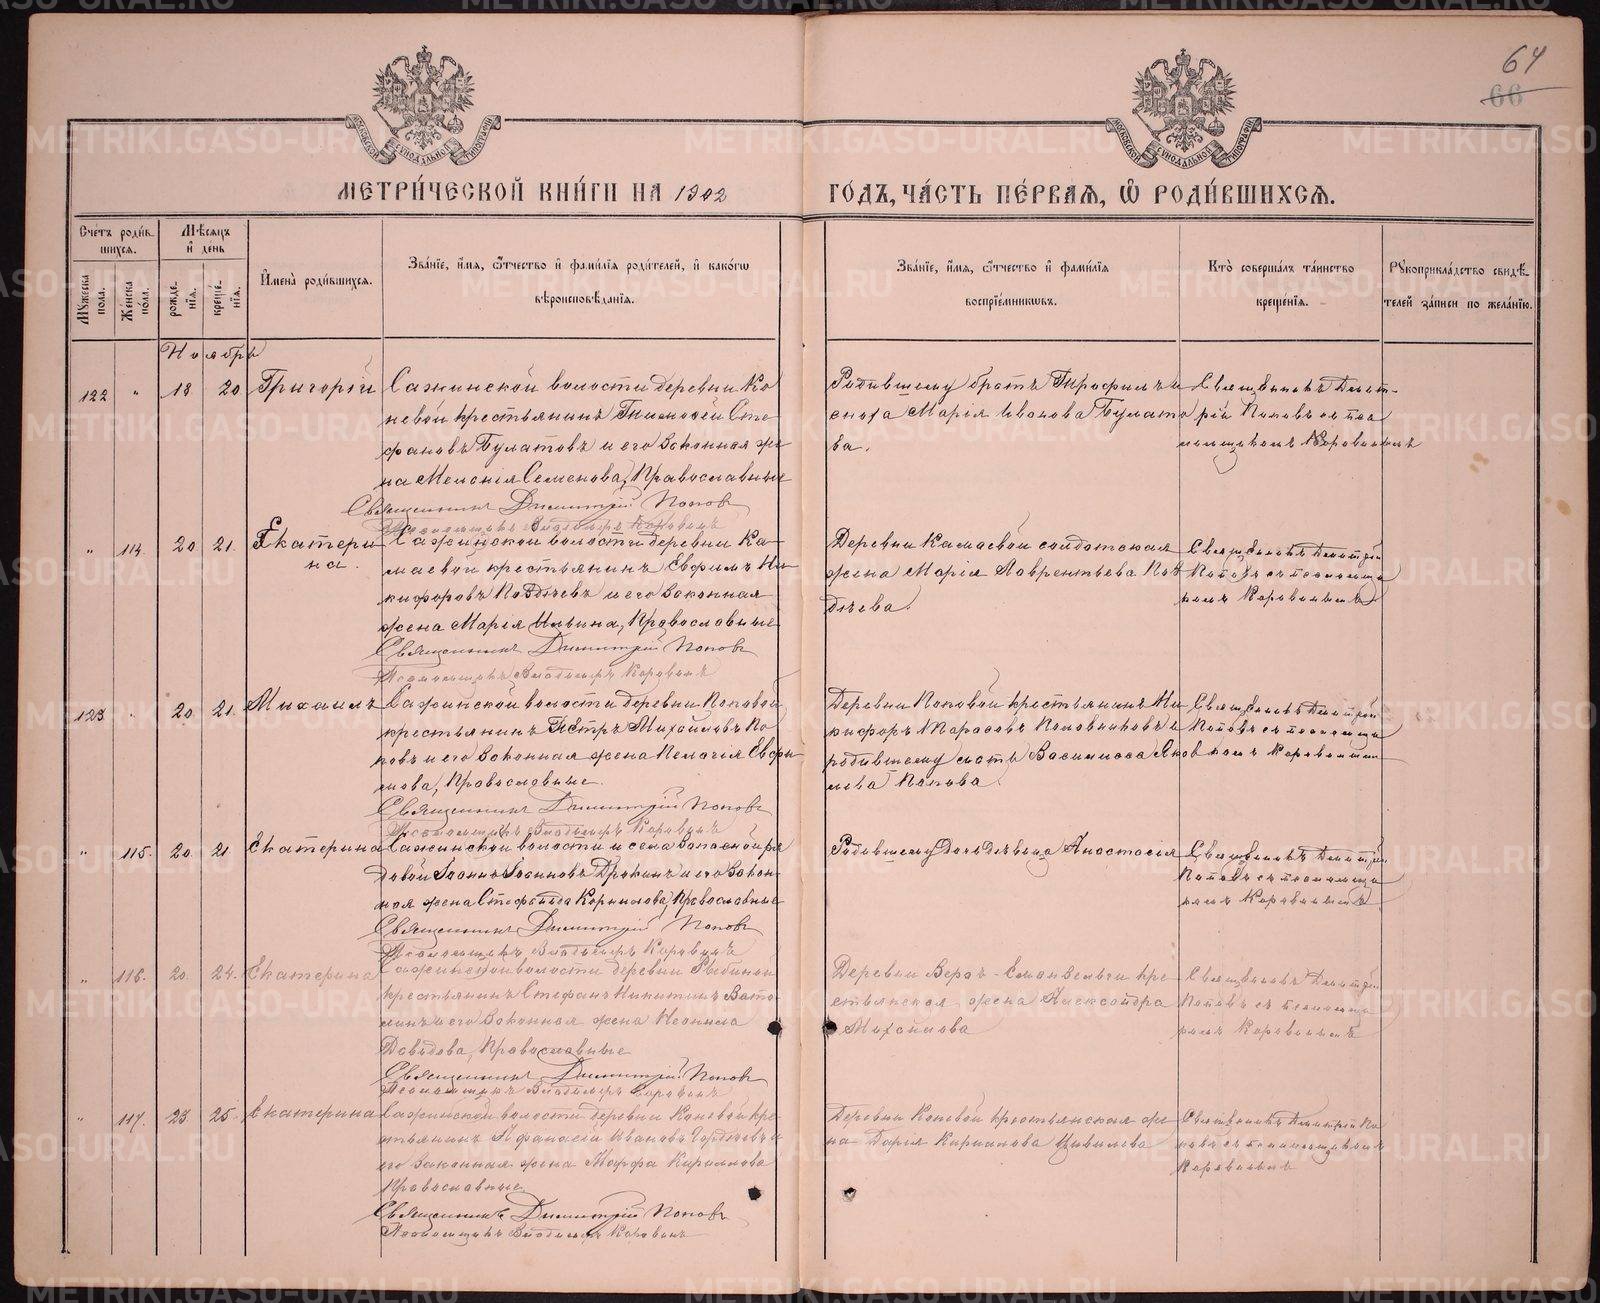 64
66
МЕТРИ́ЧЕСКОЙ КНИ́ГИ НА 1902 ГО́ДЪ, ЧА́СТЬ ПЕ́РВАЯ, Ѡ҆ РОДИ́ВШИХСЯ.
Сче́тъ роди́вшихся.
Мꙋ́жеска по́ла.
Же́нска по́ла.
Мѣ́сяцъ и҆ де́нь
рожде́нїя.
креще́нїя.
И҆мена̀ роди́вшихся.
Зва́нїе, и҆́мя, ѻ҆́тчество и҆ фами́лїя роди́телей, и҆ како́гѡ
вѣроисповѣ́данїя.
Зва́нїе, и҆́мя, ѻ҆́тчество и҆ фами́лїя
воспрїе́мникѡвъ.
Кто̀ соверша́лъ та́инство
креще́нїя.
Рꙋкоприкла́дство свидѣ́телей за́писи по жела́нїю.
Ноябрь
122 " 18 20 Григорій
Сажинской волости деревни Ко
невой крестьянинъ Тимоѳей Сте
фановъ Булатовъ и его законная же
на Мелонія Семенова, Православные
Священникъ Димитрій Поповъ
Псаломщикъ Владимиръ Коровинъ
Родившему братъ Трофимъ и
сноха Марія Иванова Булато
ва.
Священникъ Димит-
рій Поповъ съ псал
помщикомъ Коровинымъ
" 114. 20 21. Екатери
на.
Сажинской волости деревни Ка
маевой крестьянинъ Евфимъ Ни
кифоровъ Поздѣевъ и его законная
жена Марія Ильина, Православные
Священникъ Димитрій Поповъ
Псаломщикъ Владимиръ Коровинъ
Деревни Камаевой солдатская
жена Марія Лаврентьева Поз
дѣева.
Священникъ Димитрій
Поповъ съ псаломщи
комъ Коровинымъ
123 " 20 21. Михаилъ
Сажинской волости деревни Поповой
крестьянинъ Петръ Михайловъ По
повъ и его законная жена Пелагія Евфи
мова, Православные.
Священникъ Димитрій Поповъ
Псаломщикъ Владимиръ Коровинъ
Деревни Поповой крестьянинъ Ни
кифоръ Тарасовъ Половниковъ и
родившему мать Василисса Яков
лева Попова.
Священникъ Димитрій
Поповъ съ псаломщи
комъ Коровиным
" 115. 20 21 Екатерина
Сажинской волости и села запасной ря
довой Іоаннъ Іоанновъ Дрокинъ и его закон
ная жена Стефанида Корнилова, Православные
Священникъ Димитрій Поповъ
Псаломщикъ Владимиръ Коровинъ
Родившему дочь дѣвица Анастасія
Священникъ Димитрій
Поповъ съ псаломщи
комъ Коровинымъ
" 116. 20. 24. Екатерина
Сажинской волости деревни Рыбиной
крестьянинъ Стефанъ Никитинъ Вато
линъ и его законная жена Неонила
Давыдова, Православные
Священникъ Димитрій Поповъ
Псаломщикъ Владимиръ Коровинъ
Деревни Верхъ- кре
стьянская жена Александра
Михайлова
Священникъ Димитрій
Поповъ съ псаломщи
комъ Коровинымъ
" 117. 23 25. Екатерина
Сажинской волости деревни Коневой кре
стьянинъ Аѳанасій Ивановъ Гордѣевъ и
его законная жена Марфа Кириллова
Православные.
Священникъ Димитрій Поповъ
Псаломщикъ Владимиръ Коровинъ
Деревни Коневой крестьянская же
на Дарія Кириллова Цивилева
Священникъ Димитрій По
повъ съ псаломщикомъ
Коровинымъ
METRIKI.GASO-URAL.RU